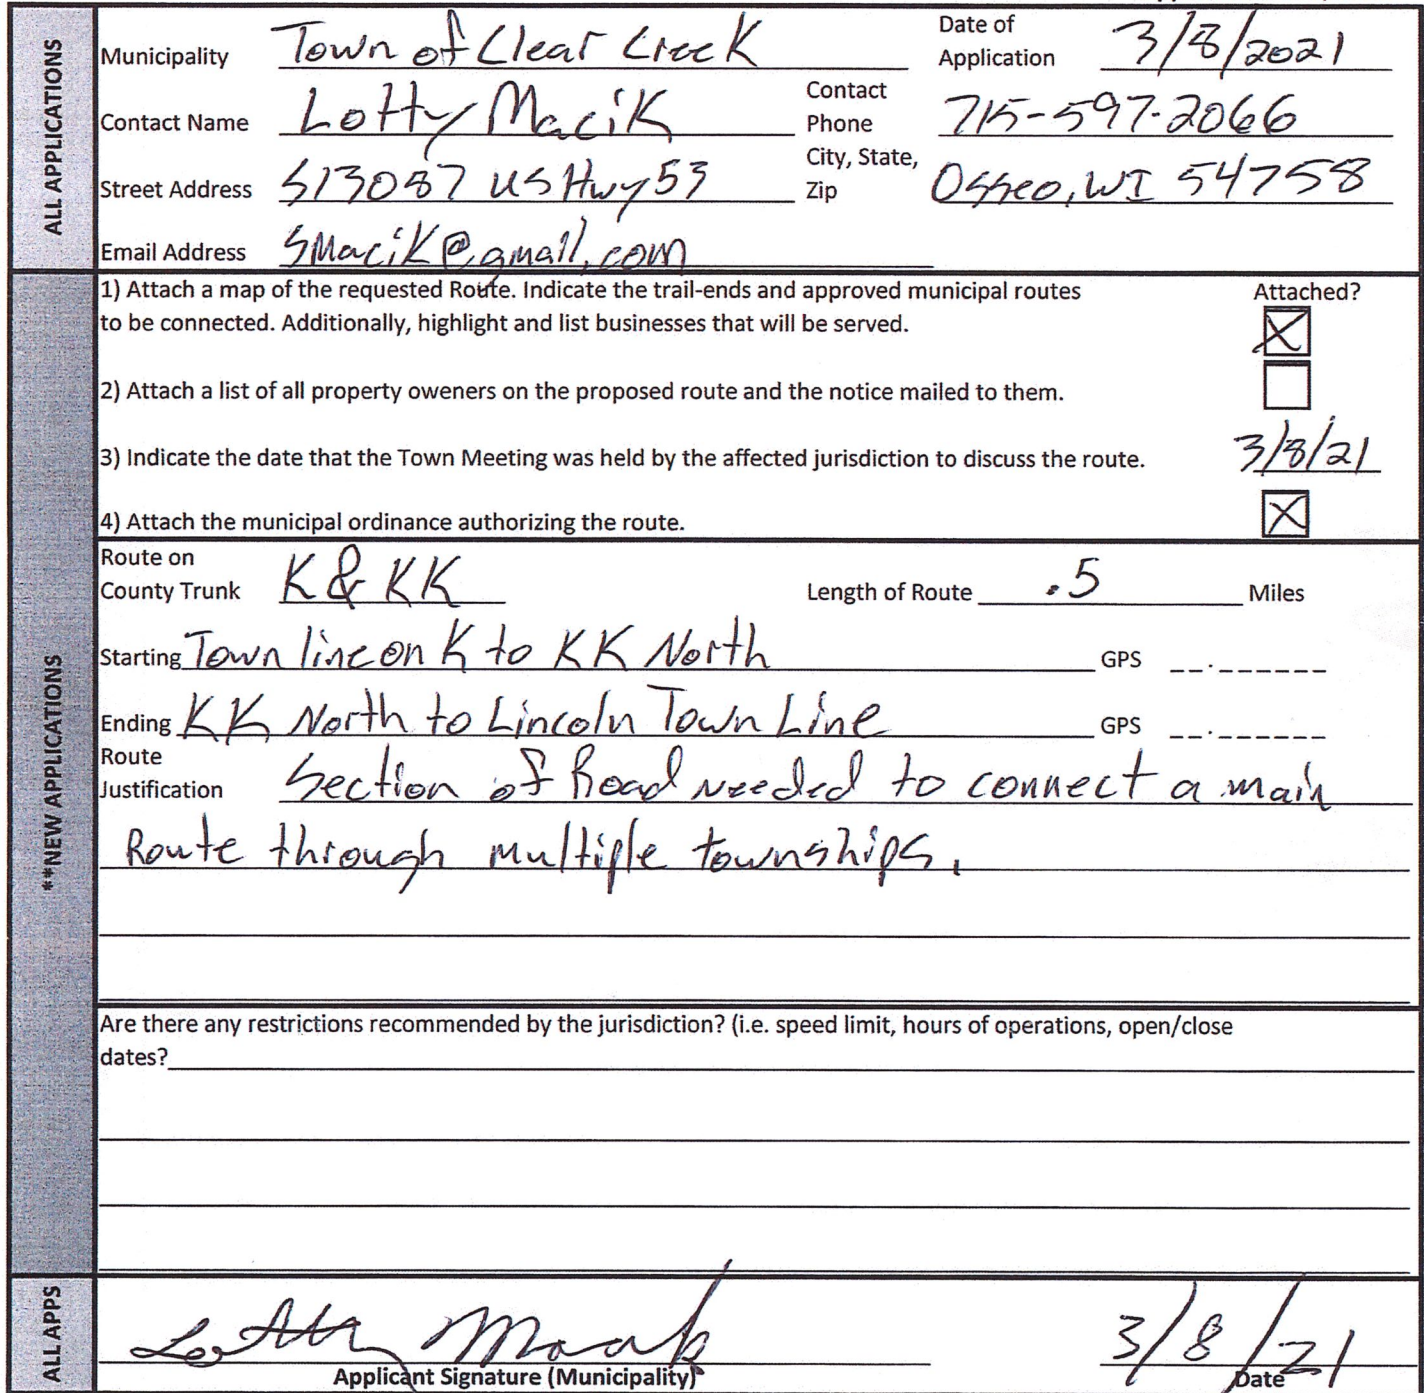 ALL APPLICATIONS
Municipality Town of Clear Creek Date of Application 3/8/2021
Contact Name Lotty Macik Contact Phone 715-597-2066
Street Address S13087 US Hwy 53 City, State, Zip Osseo, WI 54758
Email Address SMacik@gmail.com
**NEW APPLICATIONS
1) Attach a map of the requested Route. Indicate the trail-ends and approved municipal routes Attached?
to be connected. Additionally, highlight and list businesses that will be served. X
2) Attach a list of all property oweners on the proposed route and the notice mailed to them.
3) Indicate the date that the Town Meeting was held by the affected jurisdiction to discuss the route. 3/8/21
4) Attach the municipal ordinance authorizing the route. X
Route on County Trunk K & KK Length of Route .5 Miles
Starting Town line on K to KK North GPS __.______
Ending KK North to Lincoln Town Line GPS __.______
Route Justification Section of Road needed to connect a main
Route through multiple townships.
Are there any restrictions recommended by the jurisdiction? (i.e. speed limit, hours of operations, open/close
dates?
ALL APPS
Lotty Macik 3/8/21
Applicant Signature (Municipality) Date